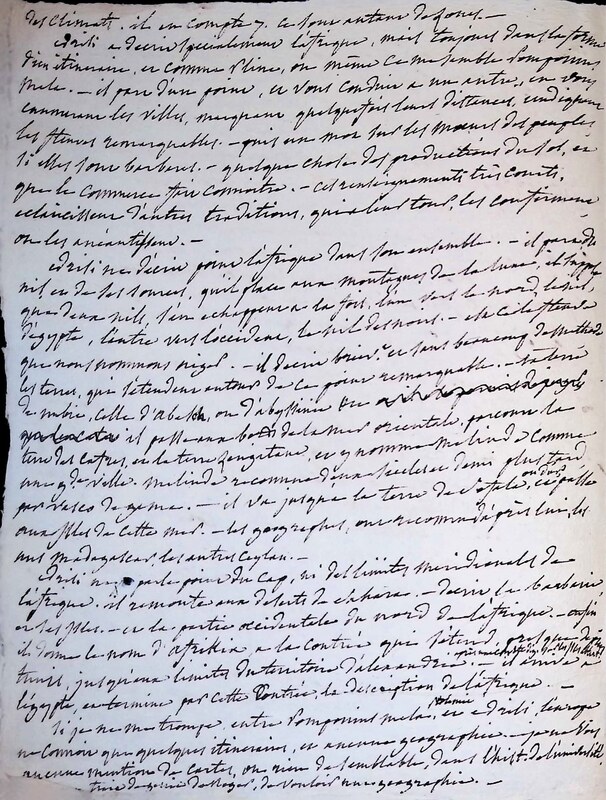 des climats. il en compte 7. ce sont autant de zones. —
edrisi a décrit spécialement l'afrique, mais toujours dans la forme
d'un itinéraire, et comme Pline, ou même ce me semble Pomponius
mela. — il part d'un point, et vous conduit a un autre, en vous
nommant les villes, marquant quelquefois leurs distances, indiquant
les fleuves remarquables. — puis un mot sur les mœurs des peuples
si elles sont barbares. — quelque chose des productions du sol, et
que le commerce fait connoitre. — ces renseignements très courts,
éclaircissent d'autres traditions, qui a leur tour, les confirment
ou les anéantissent. —
edrisi ne décrit point l'afrique dans son ensemble. — il parle du
nil et de ses sources, qu'il place aux montagnes de la lune, il
que deux nils, s'en échappent a la fois, l'un vers le nord, le nil
d'égypte, l'autre vers l'occident, le nil des noirs. — est ce là le fleuve
que nous nommons niger. — il décrit briev.t et sans beaucoup de méthode
les terres, qui s'étendent autour de ce point remarquable. — la terre
de nubie, celle d'abesch, ou d'abyssinie
il passe aux bords de la mer orientale, parcourt la
terre des cafres, et la terre zengitane, et y nomme melinde comme
une g.de ville. melinde reconnue deux siècles et demi plus tard
par vasco de gama. — il va jusque la terre de sofala, et passe
aux isles de cette mer. — les geographes, ont reconnu d'après lui, les
uns madagascar, les autres ceylan. —
edrisi ne parle point du cap, ni des limites méridionales de
l'afrique. il remonte aux déserts de sahara. — décrit la barbarie
et ses isles. — et la partie occidentale du nord de l'afrique. — enfin
il donne le nom d'afrikia, a la contrée qui s'étend presque depuis
tunis, jusqu'aux limites du territoire d'alexandrie. — il arrive a
l'égypte, et termine par cette contrée, la description de l'afrique. —
si je ne me trompe, entre Pomponius mela, et edrisi, l'europe
ne connoit que quelques itinéraires, et aucune geographie. — je ne vois
aucune mention de cartes, ou rien de semblable, dans l'hist. de l'université
de Roger, de vouloir une geographie. —